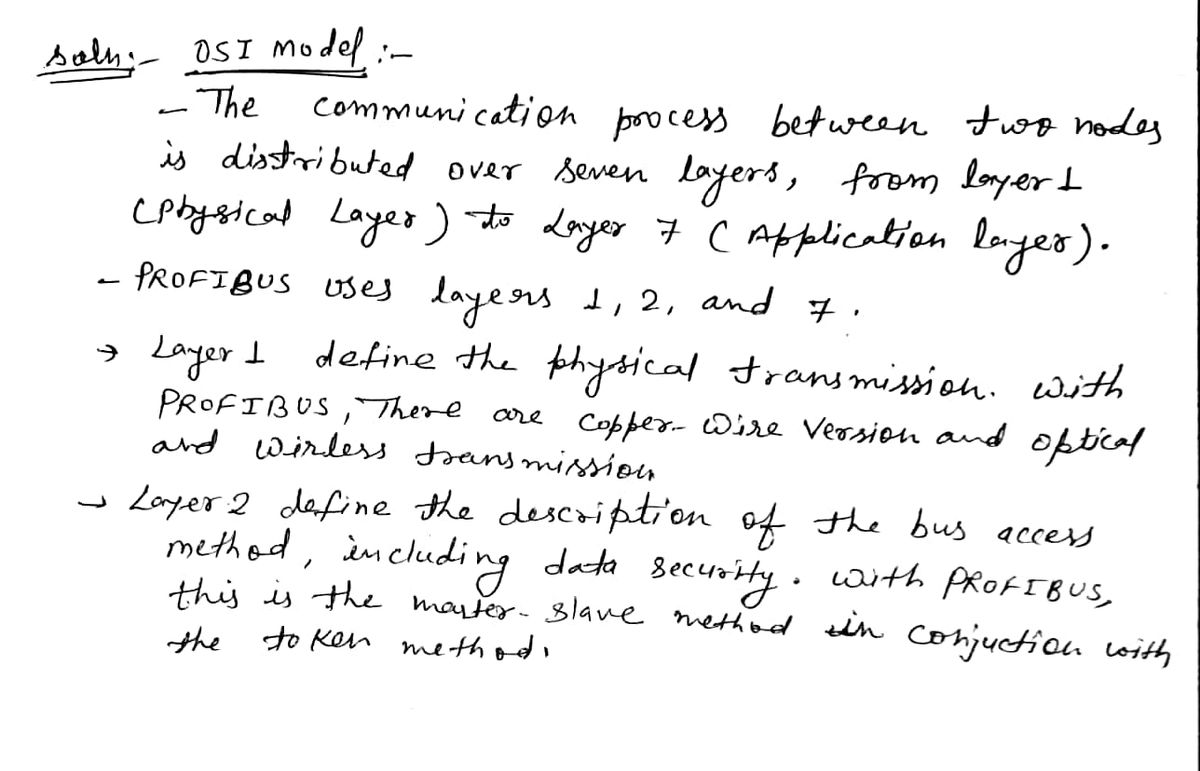 Soln:- OSI Model :-
- The communication process between two nodes
is distributed over seven layers, from layer 1
(Physical Layer) to Layer 7 (Application layer).
- PROFIBUS uses layers 1, 2, and 7.
→ Layer 1 define the physical transmission. with
PROFIBUS, There are copper-wire version and optical
and wirless transmission
→ Layer 2 define the description of the bus access
method, including data security. with PROFIBUS,
this is the master-slave method in conjuction with
the token method.